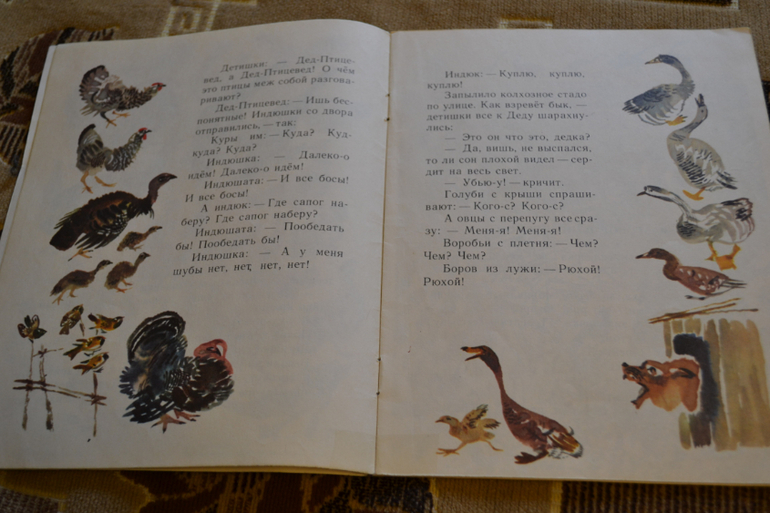 Детишки: — Дед-Птице-
вед, а Дед-Птицевед! О чём
это птицы меж собой разгова-
ривают?
Дед-Птицевед: — Ишь бес-
понятные! Индюшки со двора
отправились, — так:
Куры им: — Куда? Куд-
куда? Куда?
Индюшка: — Далеко-о
идём! Далеко-о идём!
Индюшата: — И все босы!
И все босы!
А индюк: — Где сапог на-
беру? Где сапог наберу?
Индюшата: — Пообедать
бы! Пообедать бы!
Индюшка: — А у меня
шубы нет, нет, нет, нет!
Индюк: — Куплю, куплю,
куплю!
Запылило колхозное стадо
по улице. Как взревёт бык, —
детишки все к Деду шарахну-
лись:
— Это он что это, дедка?
— Да, вишь, не выспался,
то ли сон плохой видел — сер-
дит на весь свет.
— Убью-у! — кричит.
Голуби с крыши спраши-
вают: — Кого-с? Кого-с?
А овцы с перепугу все сра-
зу: — Меня-я! Меня-я!
Воробьи с плетня: — Чем?
Чем? Чем?
Боров из лужи: — Рюхой!
Рюхой!